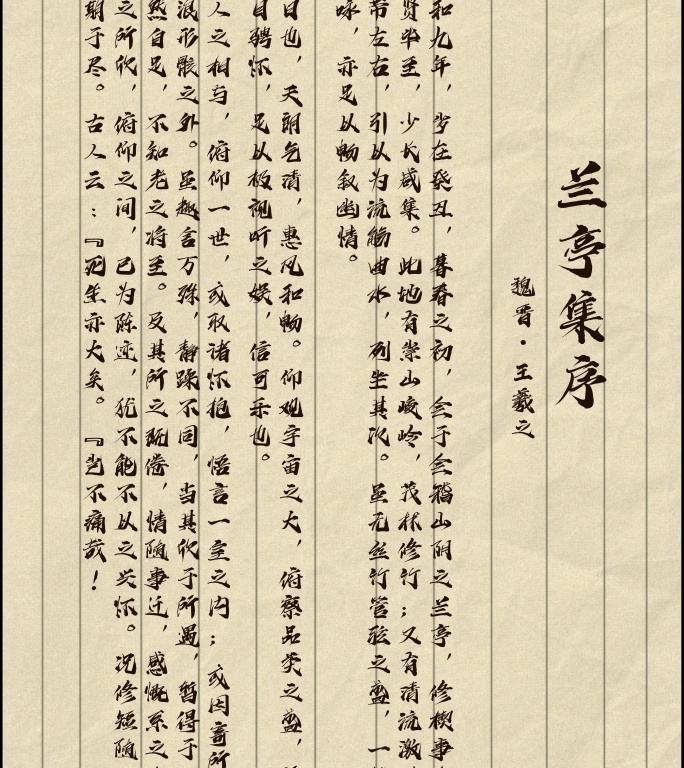 兰亭集序
魏晋·王羲之
和九年，岁在癸丑，暮春之初，会于会稽山阴之兰亭，修禊事
贤毕至，少长咸集。此地有崇山峻岭，茂林修竹；又有清流激
带左右，引以为流觞曲水，列坐其次。虽无丝竹管弦之盛，一
咏，亦足以畅叙幽情。
日也，天朗气清，惠风和畅。仰观宇宙之大，俯察品类之盛，
目骋怀，足以极视听之娱，信可乐也。
人之相与，俯仰一世，或取诸怀抱，悟言一室之内；或因寄所
浪形骸之外。虽趣舍万殊，静躁不同，当其欣于所遇，暂得于
然自足，不知老之将至。及其所之既倦，情随事迁，感慨系之
之所欣，俯仰之间，已为陈迹，犹不能不以之兴怀。况修短随
期于尽。古人云：『死生亦大矣。『岂不痛哉！